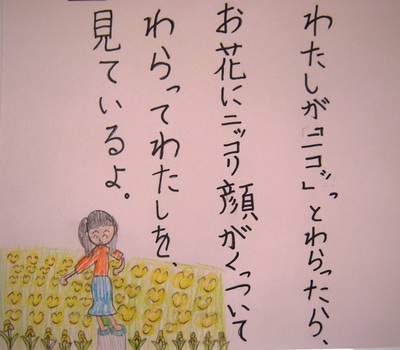 わたしが「ニコッ」っとわらったら、
お花にニッコリ顔がくっついて
わらってわたしを、
見ているよ。